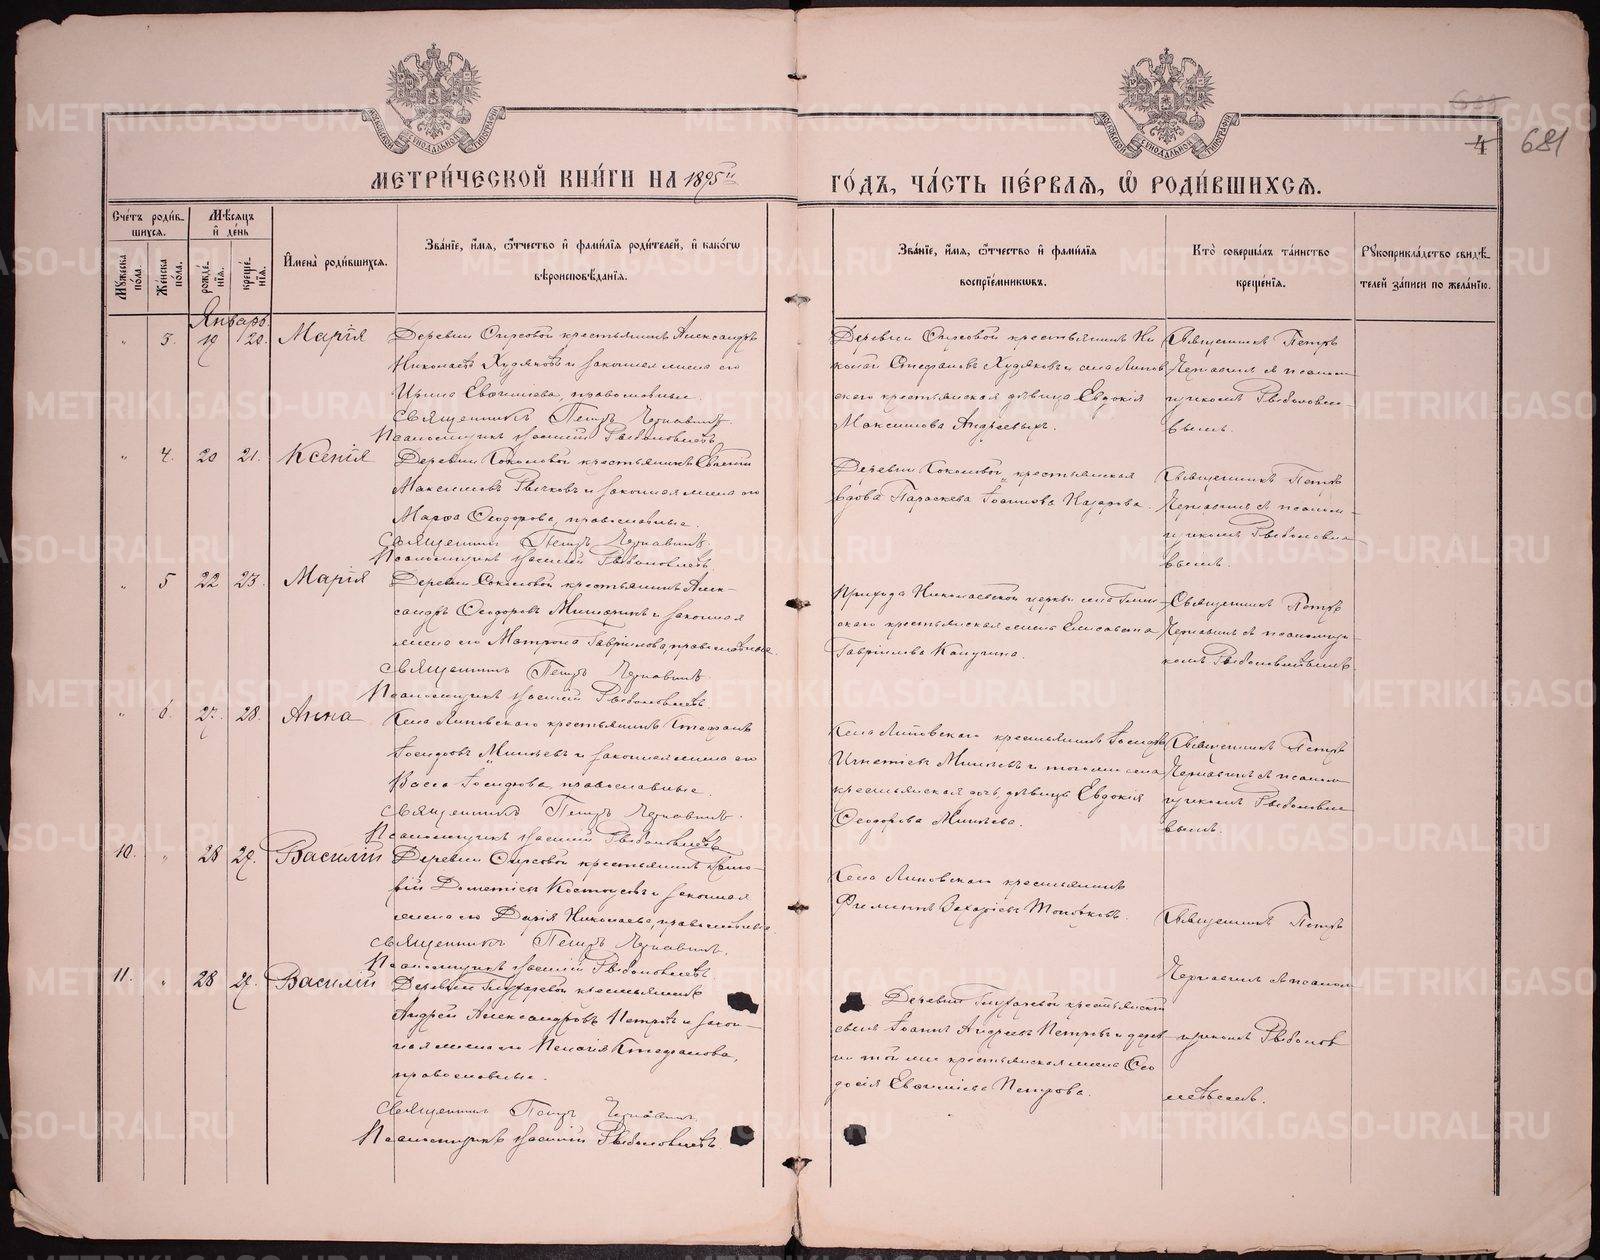 4 681
МЕТРИ́ЧЕСКОЙ КНИ́ГИ НА 1895й ГО́ДЪ, ЧА́СТЬ ПЕ́РВАЯ, Ѡ РОДИ́ВШИХСЯ.
Сче́тъ роди́в-
шихся.
Мѣсяцъ
и де́нь
Мужеска по́ла.
Же́нска по́ла.
рожде́-
нія.
креще́-
нія.
Имена̀ роди́вшихся.
Зва́ніе, и́мя, ѻ́тчество и фами́лія роди́телей, и како́гѡ
вѣроисповѣ́данія.
Зва́ніе, и́мя, ѻ́тчество и фами́лія
воспріе́мникѡвъ.
Кто̀ соверша́лъ та́инство
креще́нія.
Рукоприкла́дство свидѣ́-
телей за́писи по жела́нію.
Январь.
„ 3. 19 20. Марія
Деревни Сирсовой крестьянинъ Александръ
Николаевъ Худяковъ и законная жена его
Ирина Евѳиміева, православные.
Священникъ Петръ Чернавинъ.
Псаломщикъ Василій Рыболовлевъ
Деревни Сирсовой крестьянинъ Ни
колай Стефановъ Худяковъ и села Липов
скаго крестьянская дѣвица Евдокія
Максимова Андреевыхъ.
Священникъ Петръ
Чернавинъ съ псалом
щикомъ Рыболовле
вымъ.
„ 4. 20 21. Ксенія
Деревни Соколовой крестьянинъ
Максимовъ Рычковъ и законная жена его
Марѳа Ѳеодорова, православные.
Священникъ Петръ Чернавинъ.
Псаломщикъ Василій Рыболовлевъ.
Деревни Соколовой крестьянская
вдова Параскева Іоаннова Назарова.
Священникъ Петръ
Чернавинъ съ псалом-
щикомъ Рыболовле
вымъ.
„ 5 22 23. Марія
Деревни Соколовой крестьянинъ Алек-
сандръ Ѳеодоровъ и законная
жена его Матрона Гаврилова, православные.
Священникъ Петръ Чернавинъ
Псаломщикъ Василій Рыболовлевъ
Прихода Николаевской церкви села Глин-
скаго крестьянская жена Елисавета
Гавріилова Калугина.
Священникъ Петръ
Чернавинъ съ псаломщи-
комъ Рыболовлевымъ
„ 6. 27. 28. Анна
Села Липовскаго крестьянинъ Стефанъ
Іосифовъ Минѣевъ и законная жена его
Васса Іосифова, православные.
Священникъ Петръ Чернавинъ.
Псаломщикъ Василій Рыболовлевъ
Села Липовскаго крестьянинъ Іосифъ
Игнатіевъ Минѣевъ и того же села
крестьянская дочь, дѣвица Евдокія
Ѳеодорова Минѣева.
Священникъ Петръ
Чернавинъ съ псалом
щикомъ Рыболовле
вымъ.
10. „ 28 29. Василій
Деревни Сирсовой крестьянинъ
Дометіевъ Костоусовъ и законная
жена его Дарія Николаева, православные.
Священникъ Петръ Чернавинъ.
Псаломщикъ Василій Рыболовлевъ
Села Липовскаго крестьянинъ
Филиппъ Захаріевъ
Священникъ Петръ
Чернавинъ съ псалом
щикомъ Рыболов
левымъ.
11. „ 28 29. Василій
Деревни Глухаревой крестьянинъ
Андрей Александровъ Петровъ и закон-
ная жена его Пелагія Стефанова,
православные.
Священникъ Петръ Чернавинъ.
Псаломщикъ Василій Рыболовлевъ.
Деревни Глухаревой крестьянскій
сынъ Іоаннъ Андреевъ Петровъ и дерев
ни той же крестьянская жена Ѳео
досія Евѳиміева Петрова.
METRIKI.GASO-URAL.RU